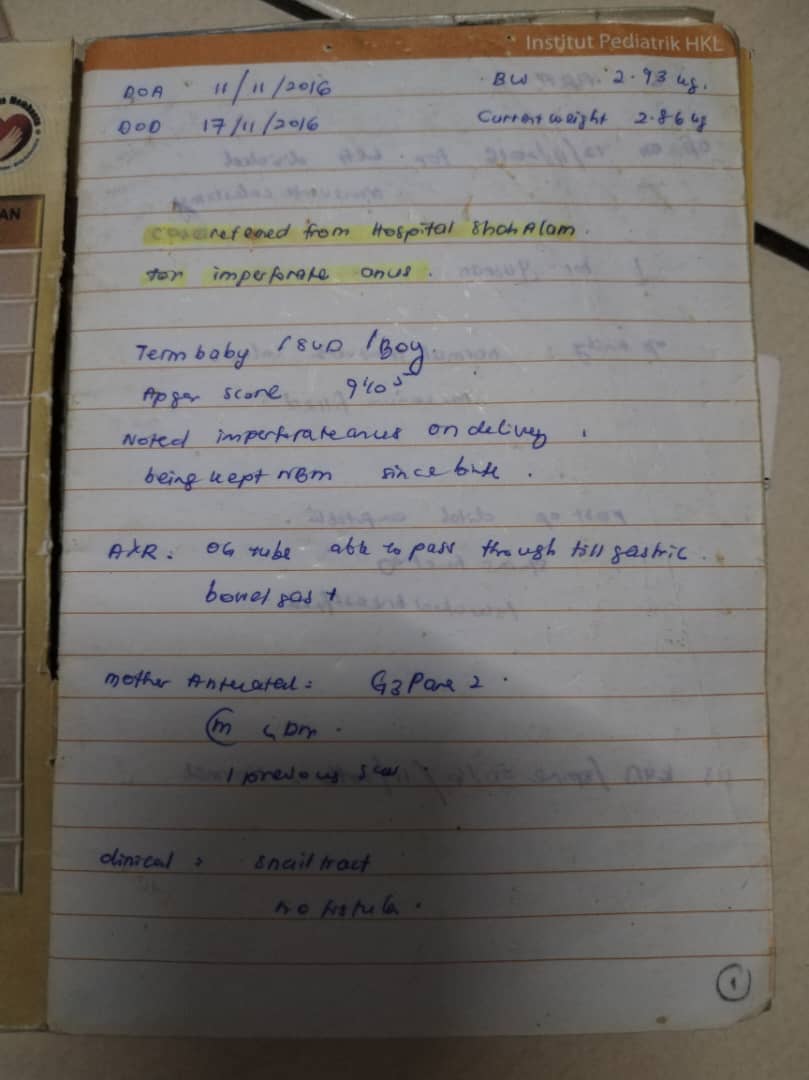 Institut Pediatrik HKL
DOA 11/11/2016 BW 2.93 kg.
DOD 17/11/2016 Current weight 2.86 kg
AN
refered from Hospital Shah Alam.
for imperforate anus.
Term baby / SVD / Boy.
Apgar score 9
Noted imperforate anus on delivery,
being kept NBM since birth.
AXR: OG tube able to pass through till gastric.
bowel gas +
mother Antenatal: G3 Para 2.
GDM.
1 previous scar
clinical: snail tract
no fistula.
1